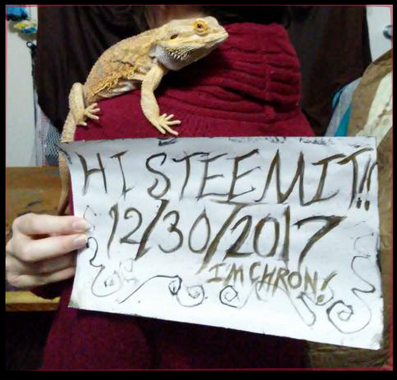 HI STEEMIT!!
12/30/2017
I'M CHRON!